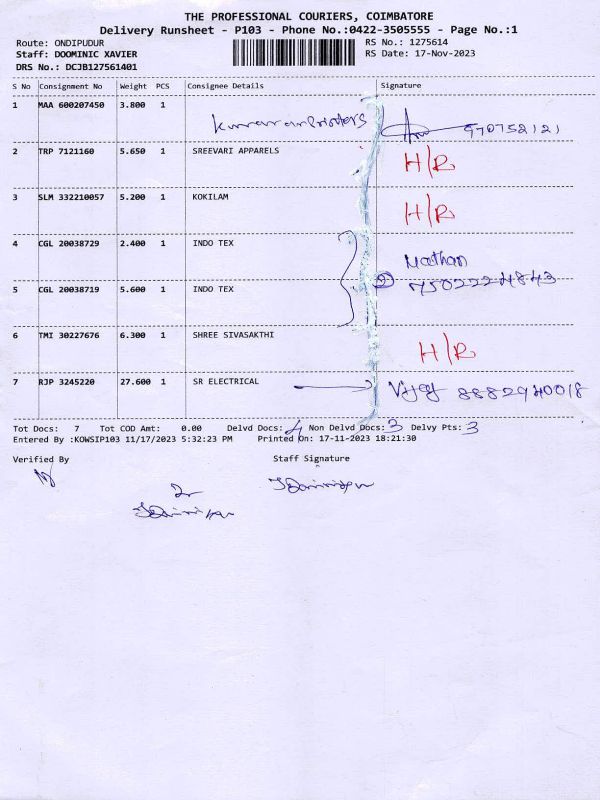 THE PROFESSIONAL COURIERS, COIMBATORE
Delivery Runsheet - P103 - Phone No.:0422-3505555 - Page No.:1
Route: ONDIPUDUR RS No.: 1275614
Staff: DOOMINIC XAVIER RS Date: 17-Nov-2023
DRS No.: DCJB127561401
S No Consignment No Weight PCS Consignee Details Signature
1 MAA 600207450 3.800 1
970752121
2 TRP 7121160 5.650 1 SREEVARI APPARELS H/R
3 SLM 332210057 5.200 1 KOKILAM H/R
4 CGL 20038729 2.400 1 INDO TEX Mathan
5 CGL 20038719 5.600 1 INDO TEX
6 TMI 30227676 6.300 1 SHREE SIVASAKTHI H/R
7 RJP 3245220 27.600 1 SR ELECTRICAL Vijay 8882940018
Tot Docs: 7 Tot COD Amt: 0.00 Delvd Docs: 4 Non Delvd Docs: 3 Delvy Pts: 3
Entered By :KOWSIP103 11/17/2023 5:32:23 PM Printed On: 17-11-2023 18:21:30
Verified By Staff Signature